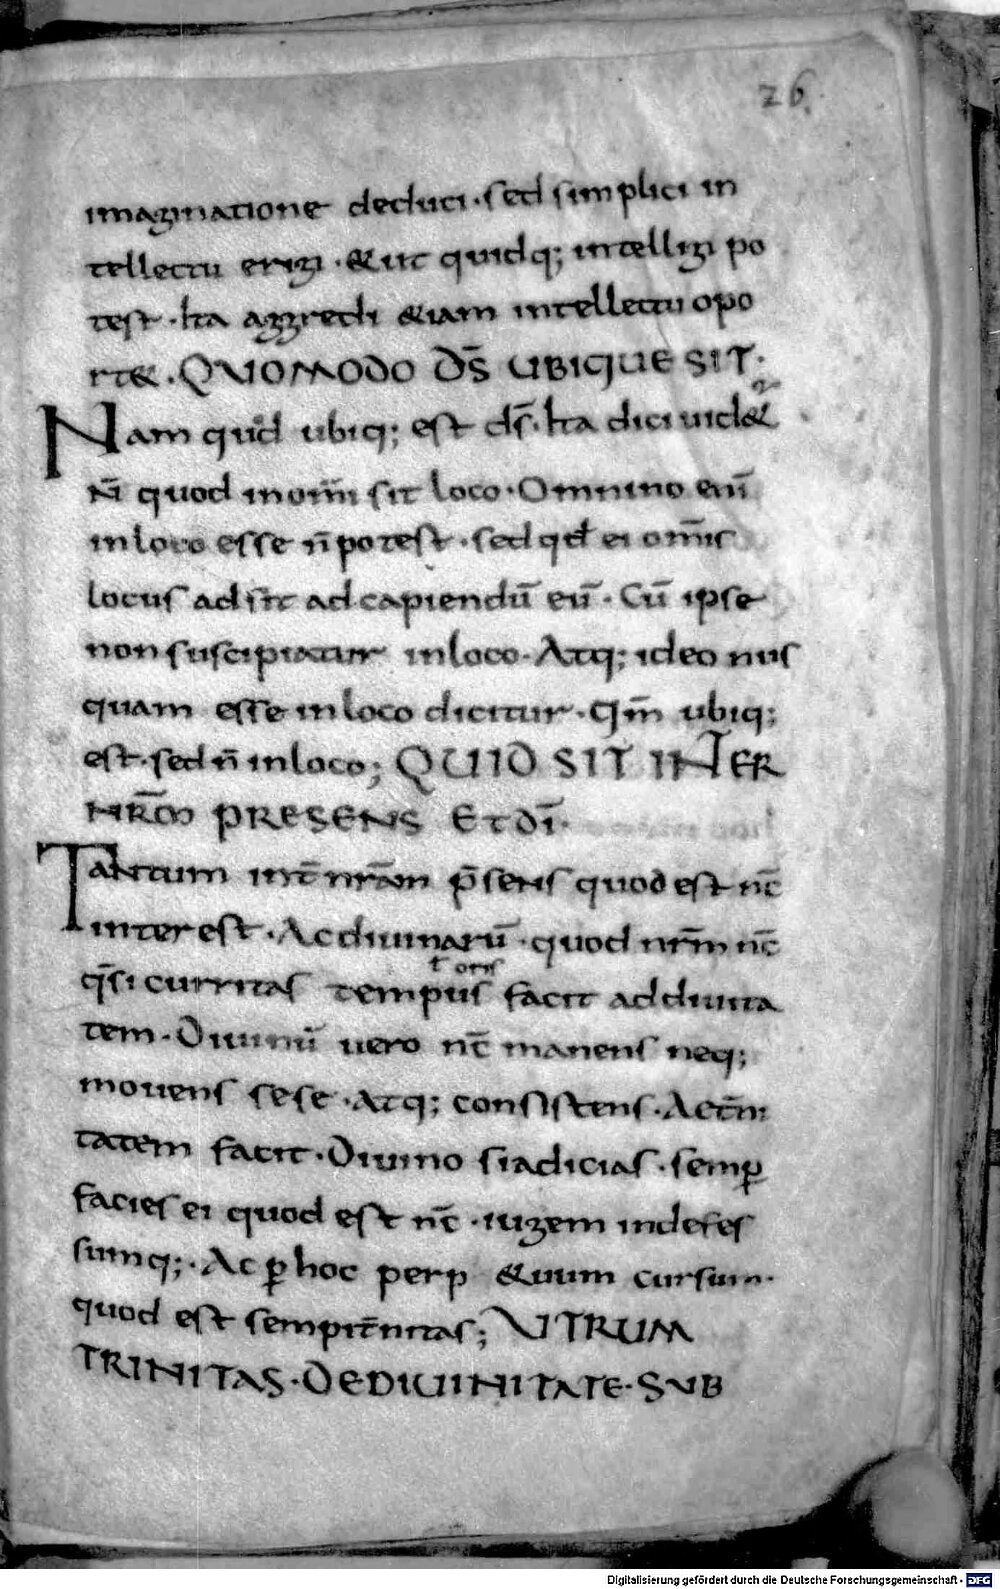 26.
imaginatione deduci · sed simplici in
tellectu erigi · & ut quidq; intelligi po
test · Ita aggredi &iam intellectu opo
rt& · QUOMODO DS̄ UBIQUE SIT ·
Nam quod ubiq; est ds̄ · Ita dici uid&ur
n̄ quod inom̄i sit loco · Omnino eni̅
inloco esse n̄ potest · sed qđ ei om̄is
locus adsit adcapiendū eū · Cū ipse
non suscipiatur inloco · Atq; ideo nus
quam esse inloco dicitur · Qm̄ ubiq;
est · sed n̄ inloco; QUID SIT INTER
NRM̄ PRESENS ET DI̅ ·
Tantum int̄ nr̄am p̄sens quod est nc̄
interest · Ac diuinarū · quod nr̄m nc̄
q̄si curritas tempus facit addiuita
t oris
tem · Diuinū uero nc̄ manens neq;
mouens sese · atq; consistens · Aet̄ni
tatem facit · Diuino siadicias · semp̄
facies ei quod est nc̄ · iugem indefes
sumq; · Ac p̄ hoc perp &uum cursum ·
quod est sempit̄nitas; UTRUM
TRINITAS · DEDIUINITATE · SUB
Digitalisierung gefördert durch die Deutsche Forschungsgemeinschaft - DFG